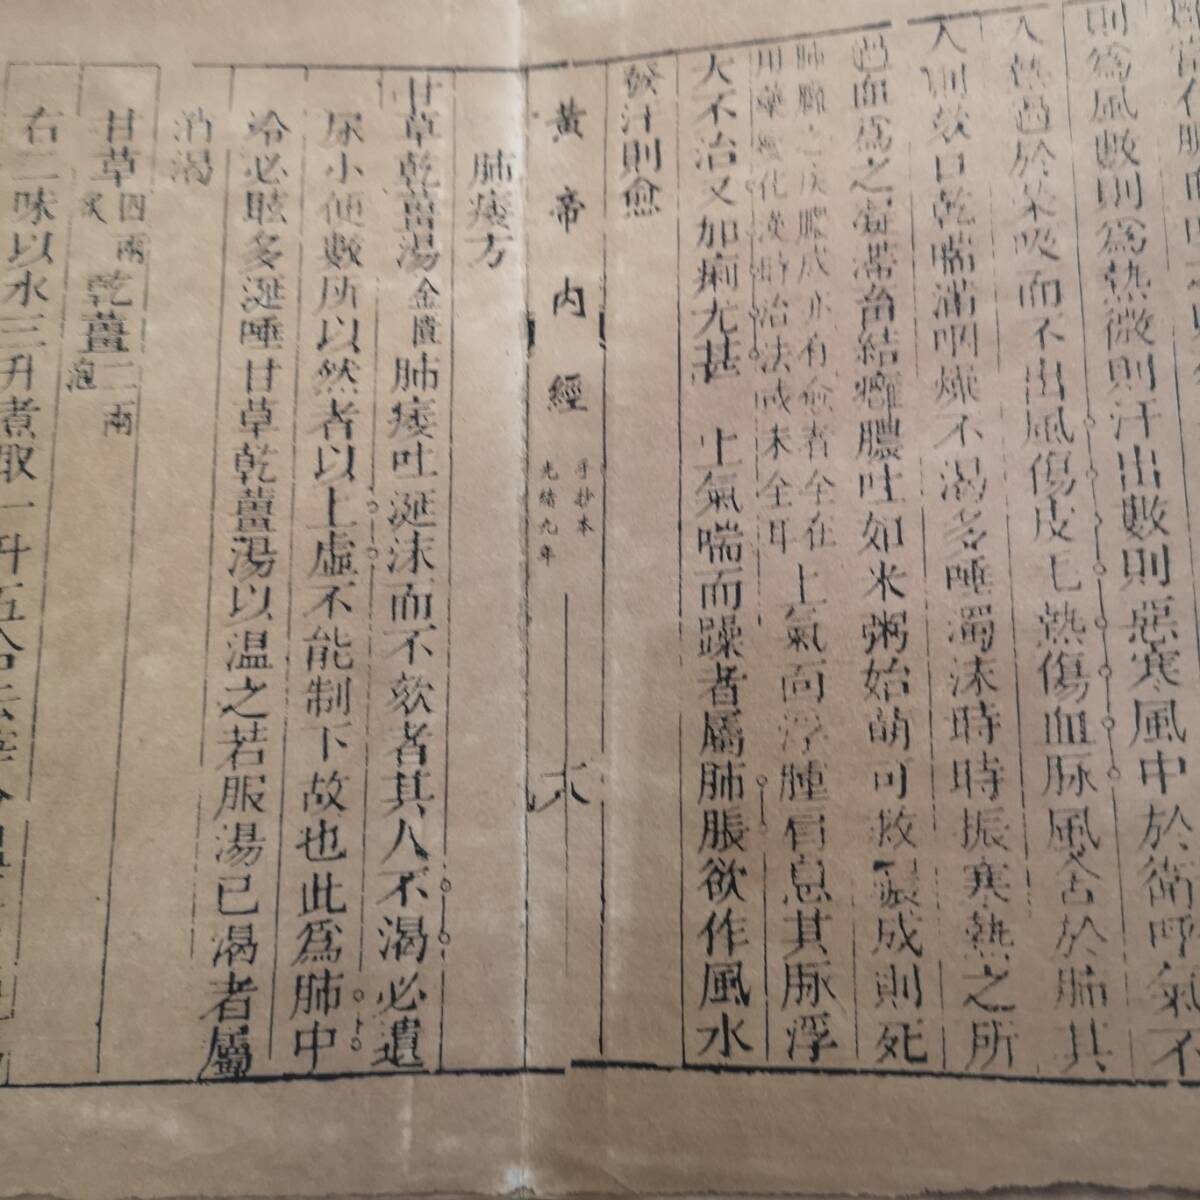 則爲風數則爲熱微則汗出數則惡寒風中於衛呼氣不
入熱過於榮吸而不出風傷皮毛熱傷血脉風舍於肺其
人則欬口乾喘滿咽燥不渴多唾濁沫時時振寒熱之所
過血爲之凝滯畜結癰膿吐如米粥始萌可救膿成則死
肺癰之疾膿成亦有愈者全在
用藥變化漢時治法或未全耳
上氣面浮腫肩息其脉浮
大不治又加痢尤甚 上氣喘而躁者屬肺脹欲作風水
發汗則愈
黃帝內經
手抄本
光緒九年
六
肺痿方
甘草乾薑湯金匱肺痿吐涎沫而不欬者其人不渴必遺
尿小便數所以然者以上虛不能制下故也此爲肺中
冷必眩多涎唾甘草乾薑湯以温之若服湯已渴者屬
消渴
甘草四兩炙乾薑二兩泡
右二味以水三升煮取一升五合去滓